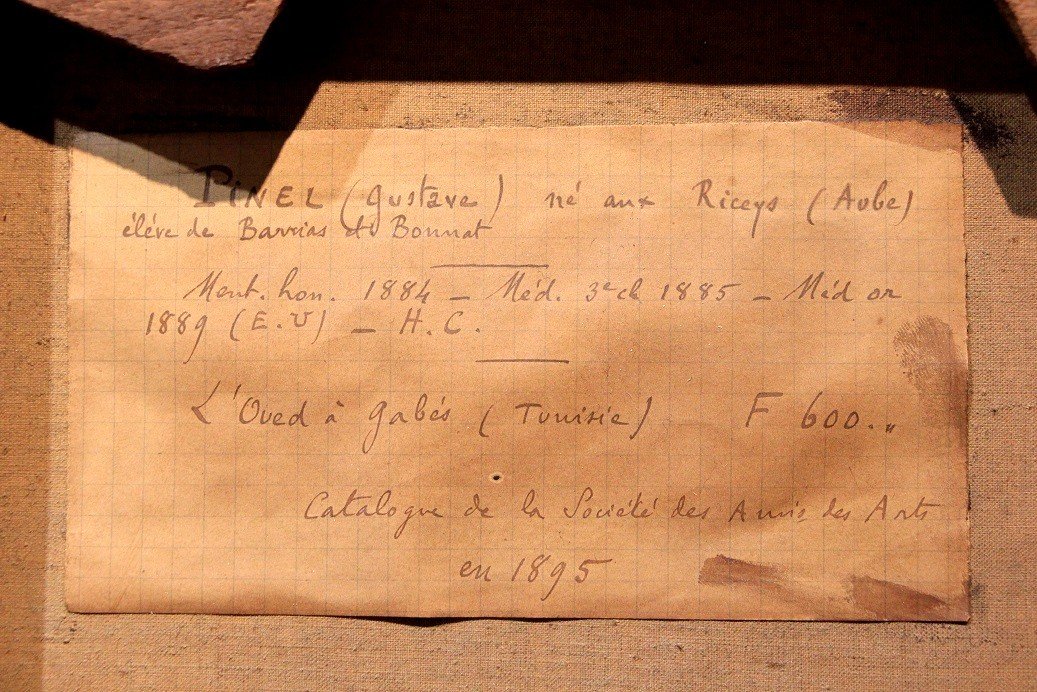 PINEL (Gustave) né aux Riceys (Aube)
élève de Barrias et Bonnat
Ment. hon. 1884 — Méd. 3e cl 1885 — Méd or
1889 (E.U) — H.C.
L'Oued à Gabés (Tunisie) F 600.„
Catalogue de la Société des Amis des Arts
en 1895